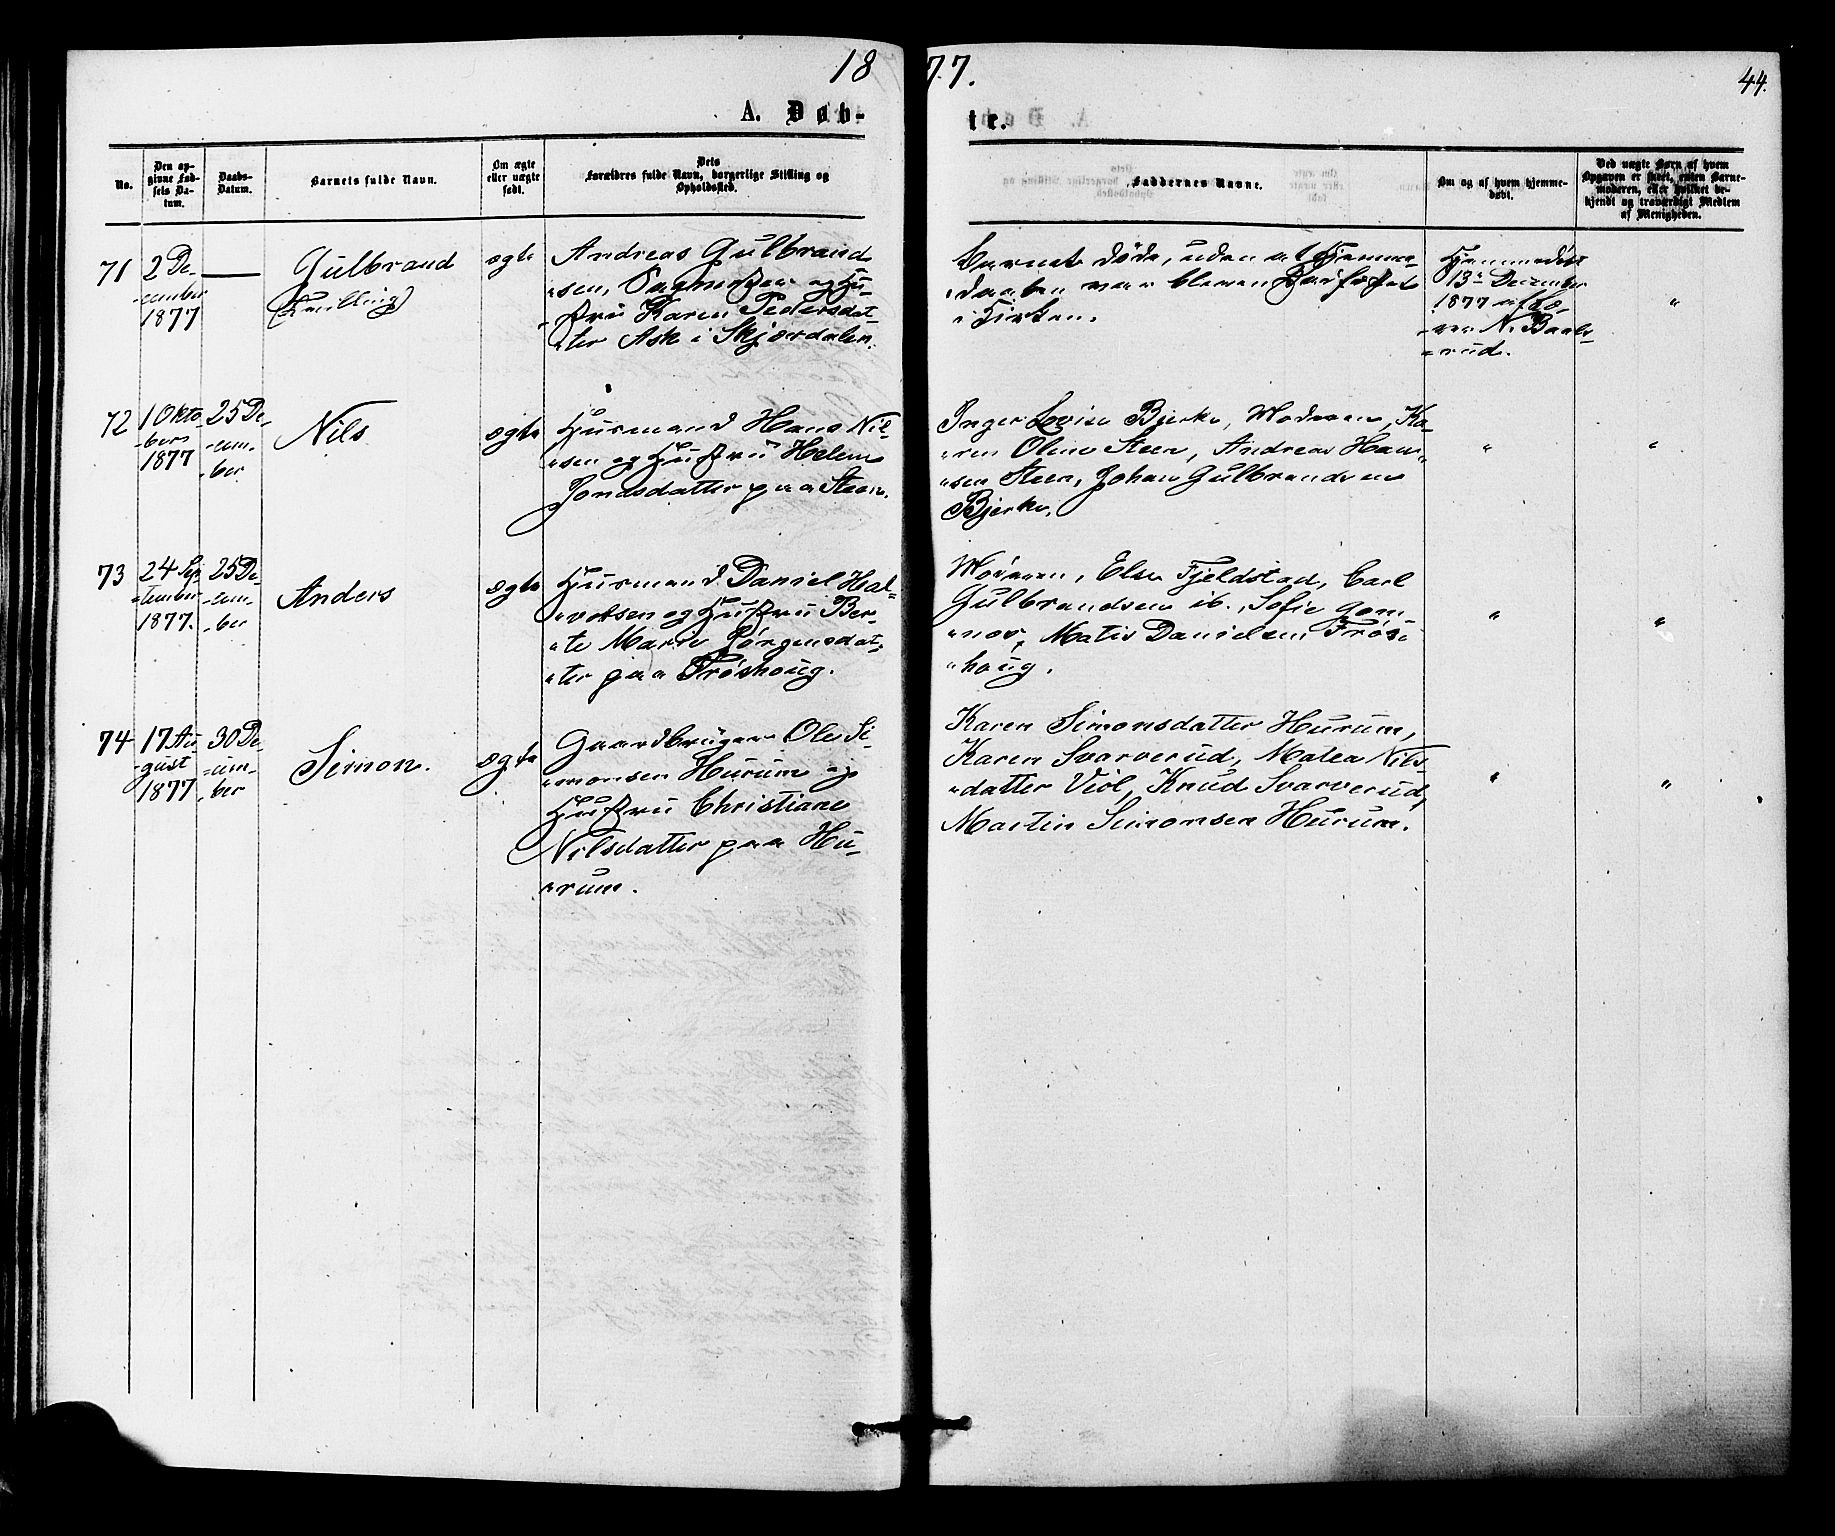 1877.
44.
A. Døbte.
No.
Den opgivne Fødsels Datum.
Daabs-Datum.
Barnets fulde Navn.
Om ægte eller uægte født.
Dets Forældres fulde Navn, borgerlige Stilling og Opholdssted.
Faddernes Navne.
Om og af hvem hjemmedøbt.
Ved uægte Børn af hvem Opgaven er skeet, enten Barnemoderen, eller hvilket bekjendt og troværdigt Medlem af Menigheden.
71
2 De-
cember
1877
—
Gulbrand
(Tvilling)
ægte
Andreas Gulbrand-
sen, og Hu-
stru Karen Pedersdat-
ter Ask i Skjærdalen.
Barnet døde, uden at Hjemme-
daaben var bleven stadfæstet
i Kirken.
Hjemmedøbt
13de December
1877 af Læ-
rer N. Baals-
rud.
"
72
1 Okto-
ber
1877
25 De-
cem-
ber
Nils
ægte
Husmand Hans Nil-
sen og Hustru Helene
Jonsdatter paa Steen.
Inger Lovise Bjerke, Moderen, Ka-
ren Oline Steen, Andreas Han-
sen Steen, Johan Gulbrandsen
Bjerke.
"
"
73
24 Sep-
tember
1877.
25 De-
cem-
ber
Anders
ægte
Husmand Daniel Hal-
vorsen og Hustru Ber-
te Marie Jørgensdat-
ter paa Frøshoug.
Moderen, Else Fjeldstad, Carl
Gulbrandsen ib., Sofie Gom-
nov, Matis Danielsen Frøs-
houg.
"
"
74
17 Au-
gust
1877
30 De-
cem-
ber
Simon.
ægte
Gaardbruger Ole Si-
monsen Hurum og
Hustru Christiane
Nilsdatter paa Hu-
rum.
Karen Simonsdatter Hurum,
Karen Svarverud, Malea Nils-
datter Viol, Knud Svarverud,
Martin Simonsen Hurum.
"
"